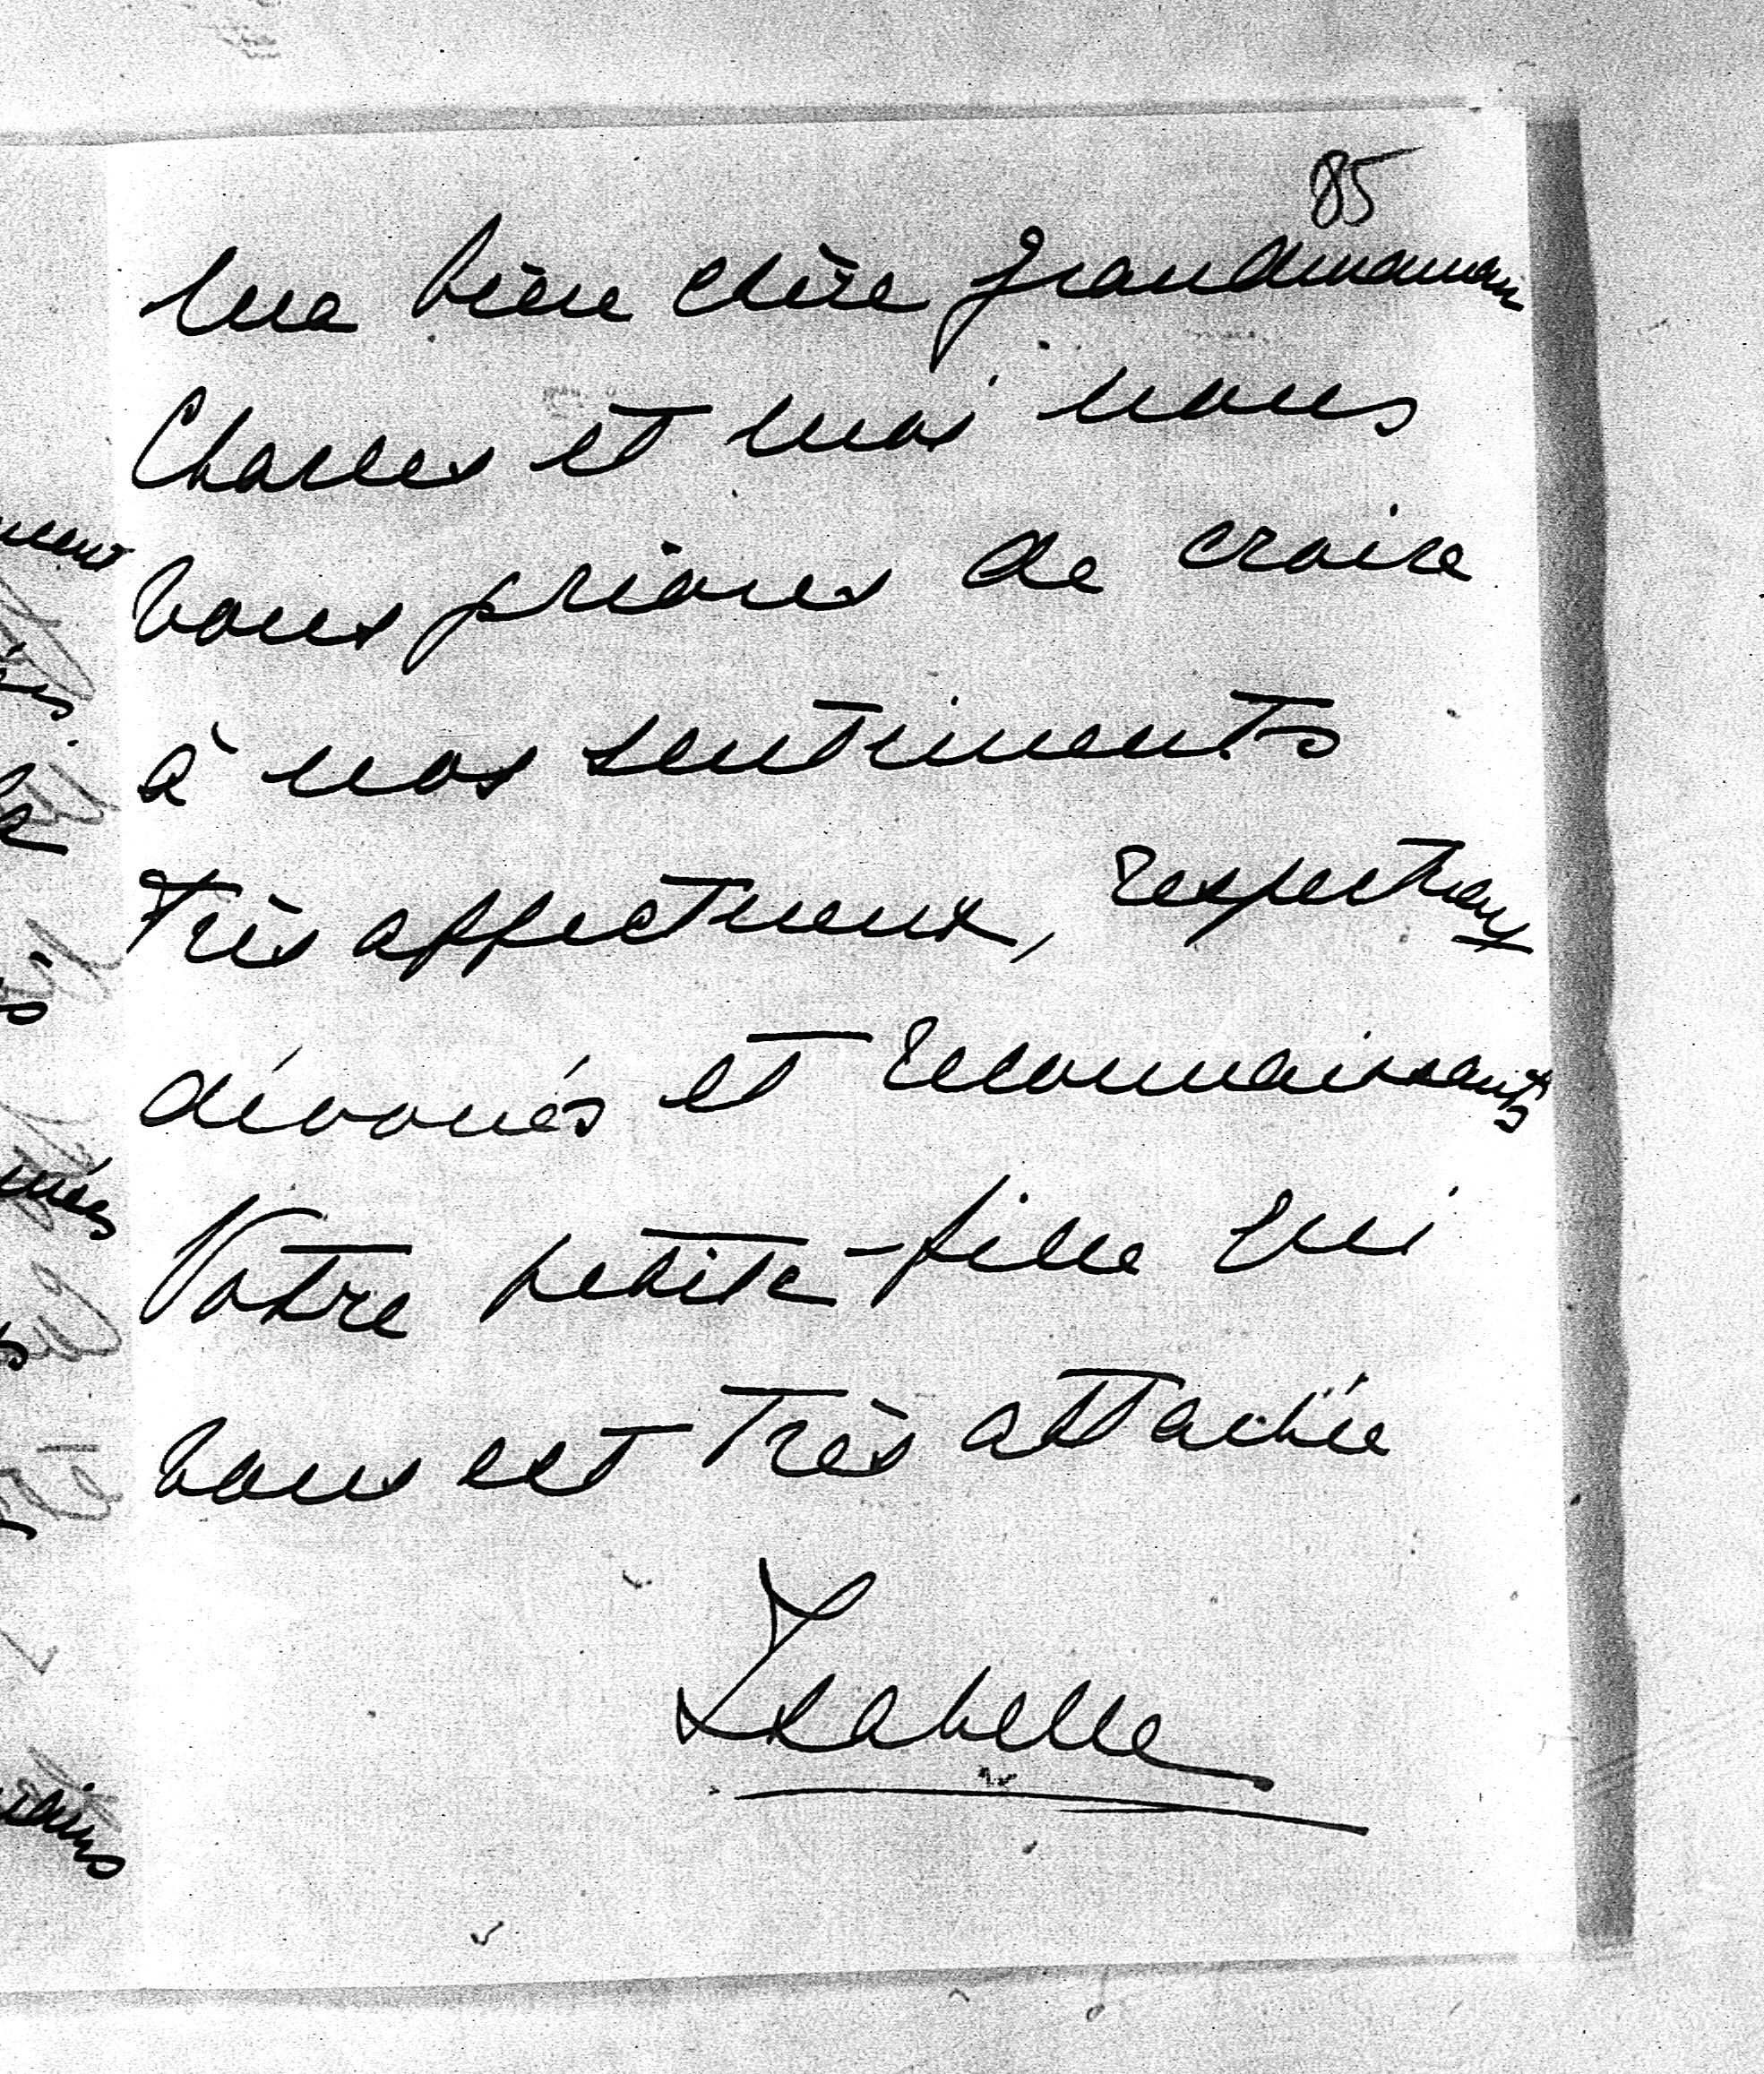 85
Ma bien chère grandmaman
Charles et moi nous
vous prions de croire
à nos sentiments
très affectueux, respectueux
dévoués et reconnaissants
Votre petite-fille qui
vous est très attachée
Isabelle